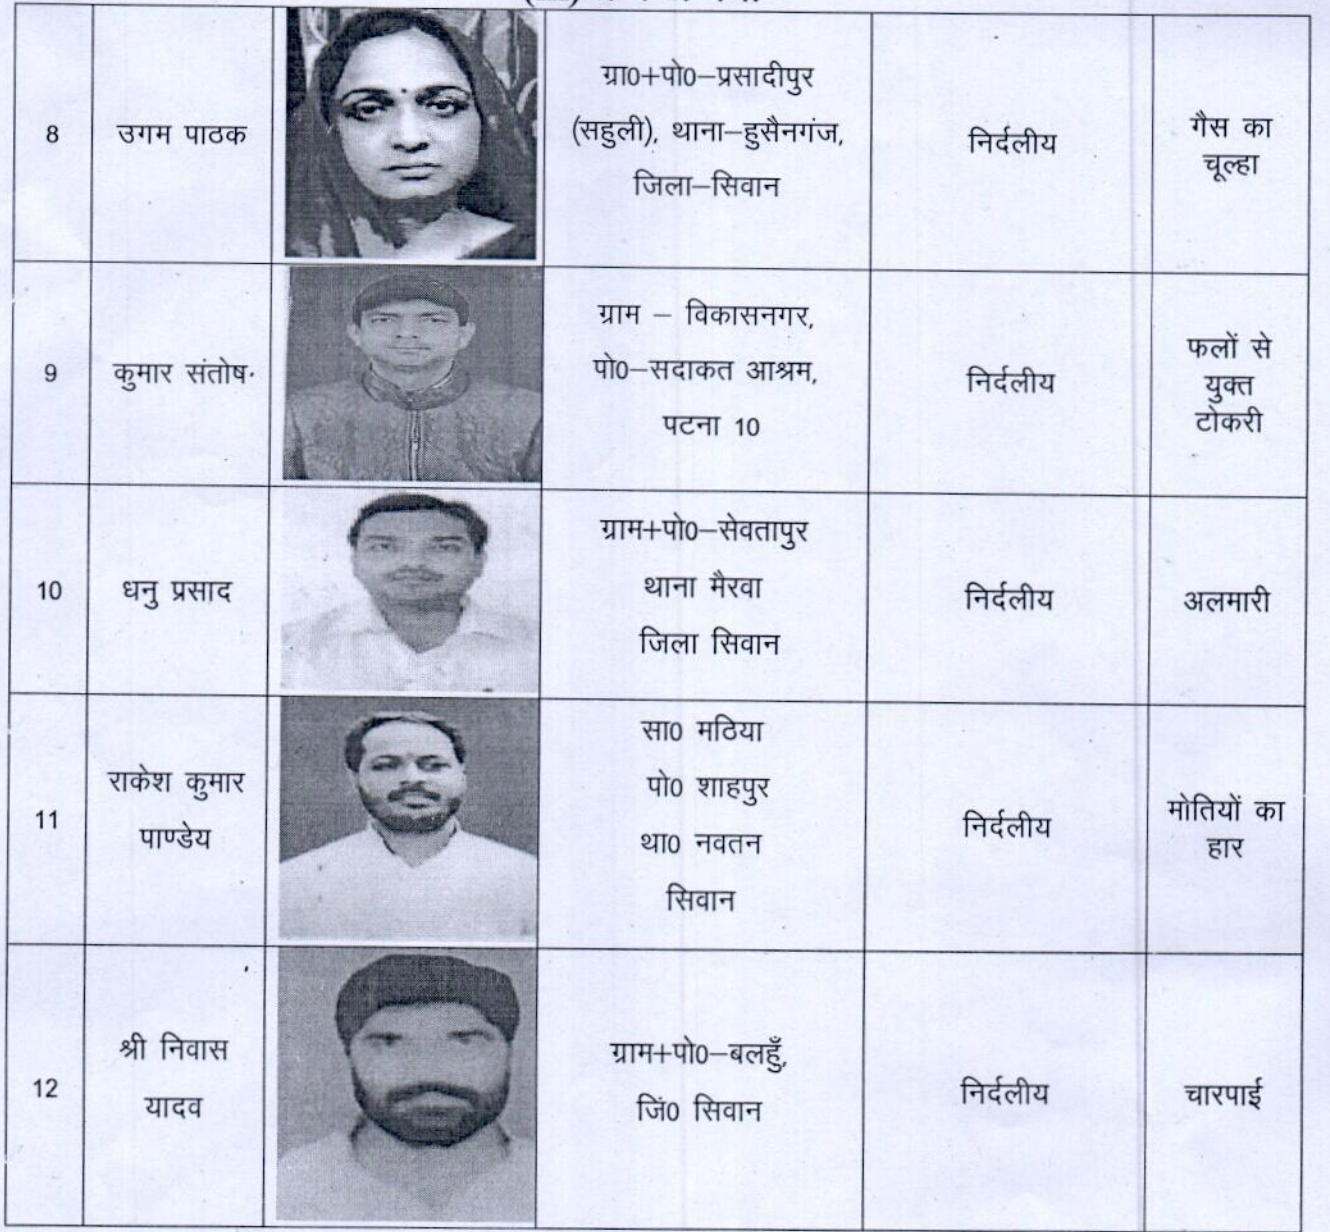 8
उगम पाठक
ग्रा0+पो0–प्रसादीपुर
(सहुली), थाना–हुसैनगंज,
जिला–सिवान
निर्दलीय
गैस का
चूल्हा
9
कुमार संतोष
ग्राम – विकासनगर,
पो0–सदाकत आश्रम,
पटना 10
निर्दलीय
फलों से
युक्त
टोकरी
10
धनु प्रसाद
ग्राम+पो0–सेवतापुर
थाना मैरवा
जिला सिवान
निर्दलीय
अलमारी
11
राकेश कुमार
पाण्डेय
सा0 मठिया
पो0 शाहपुर
था0 नवतन
सिवान
निर्दलीय
मोतियों का
हार
12
श्री निवास
यादव
ग्राम+पो0–बलहुँ,
जिं0 सिवान
निर्दलीय
चारपाई